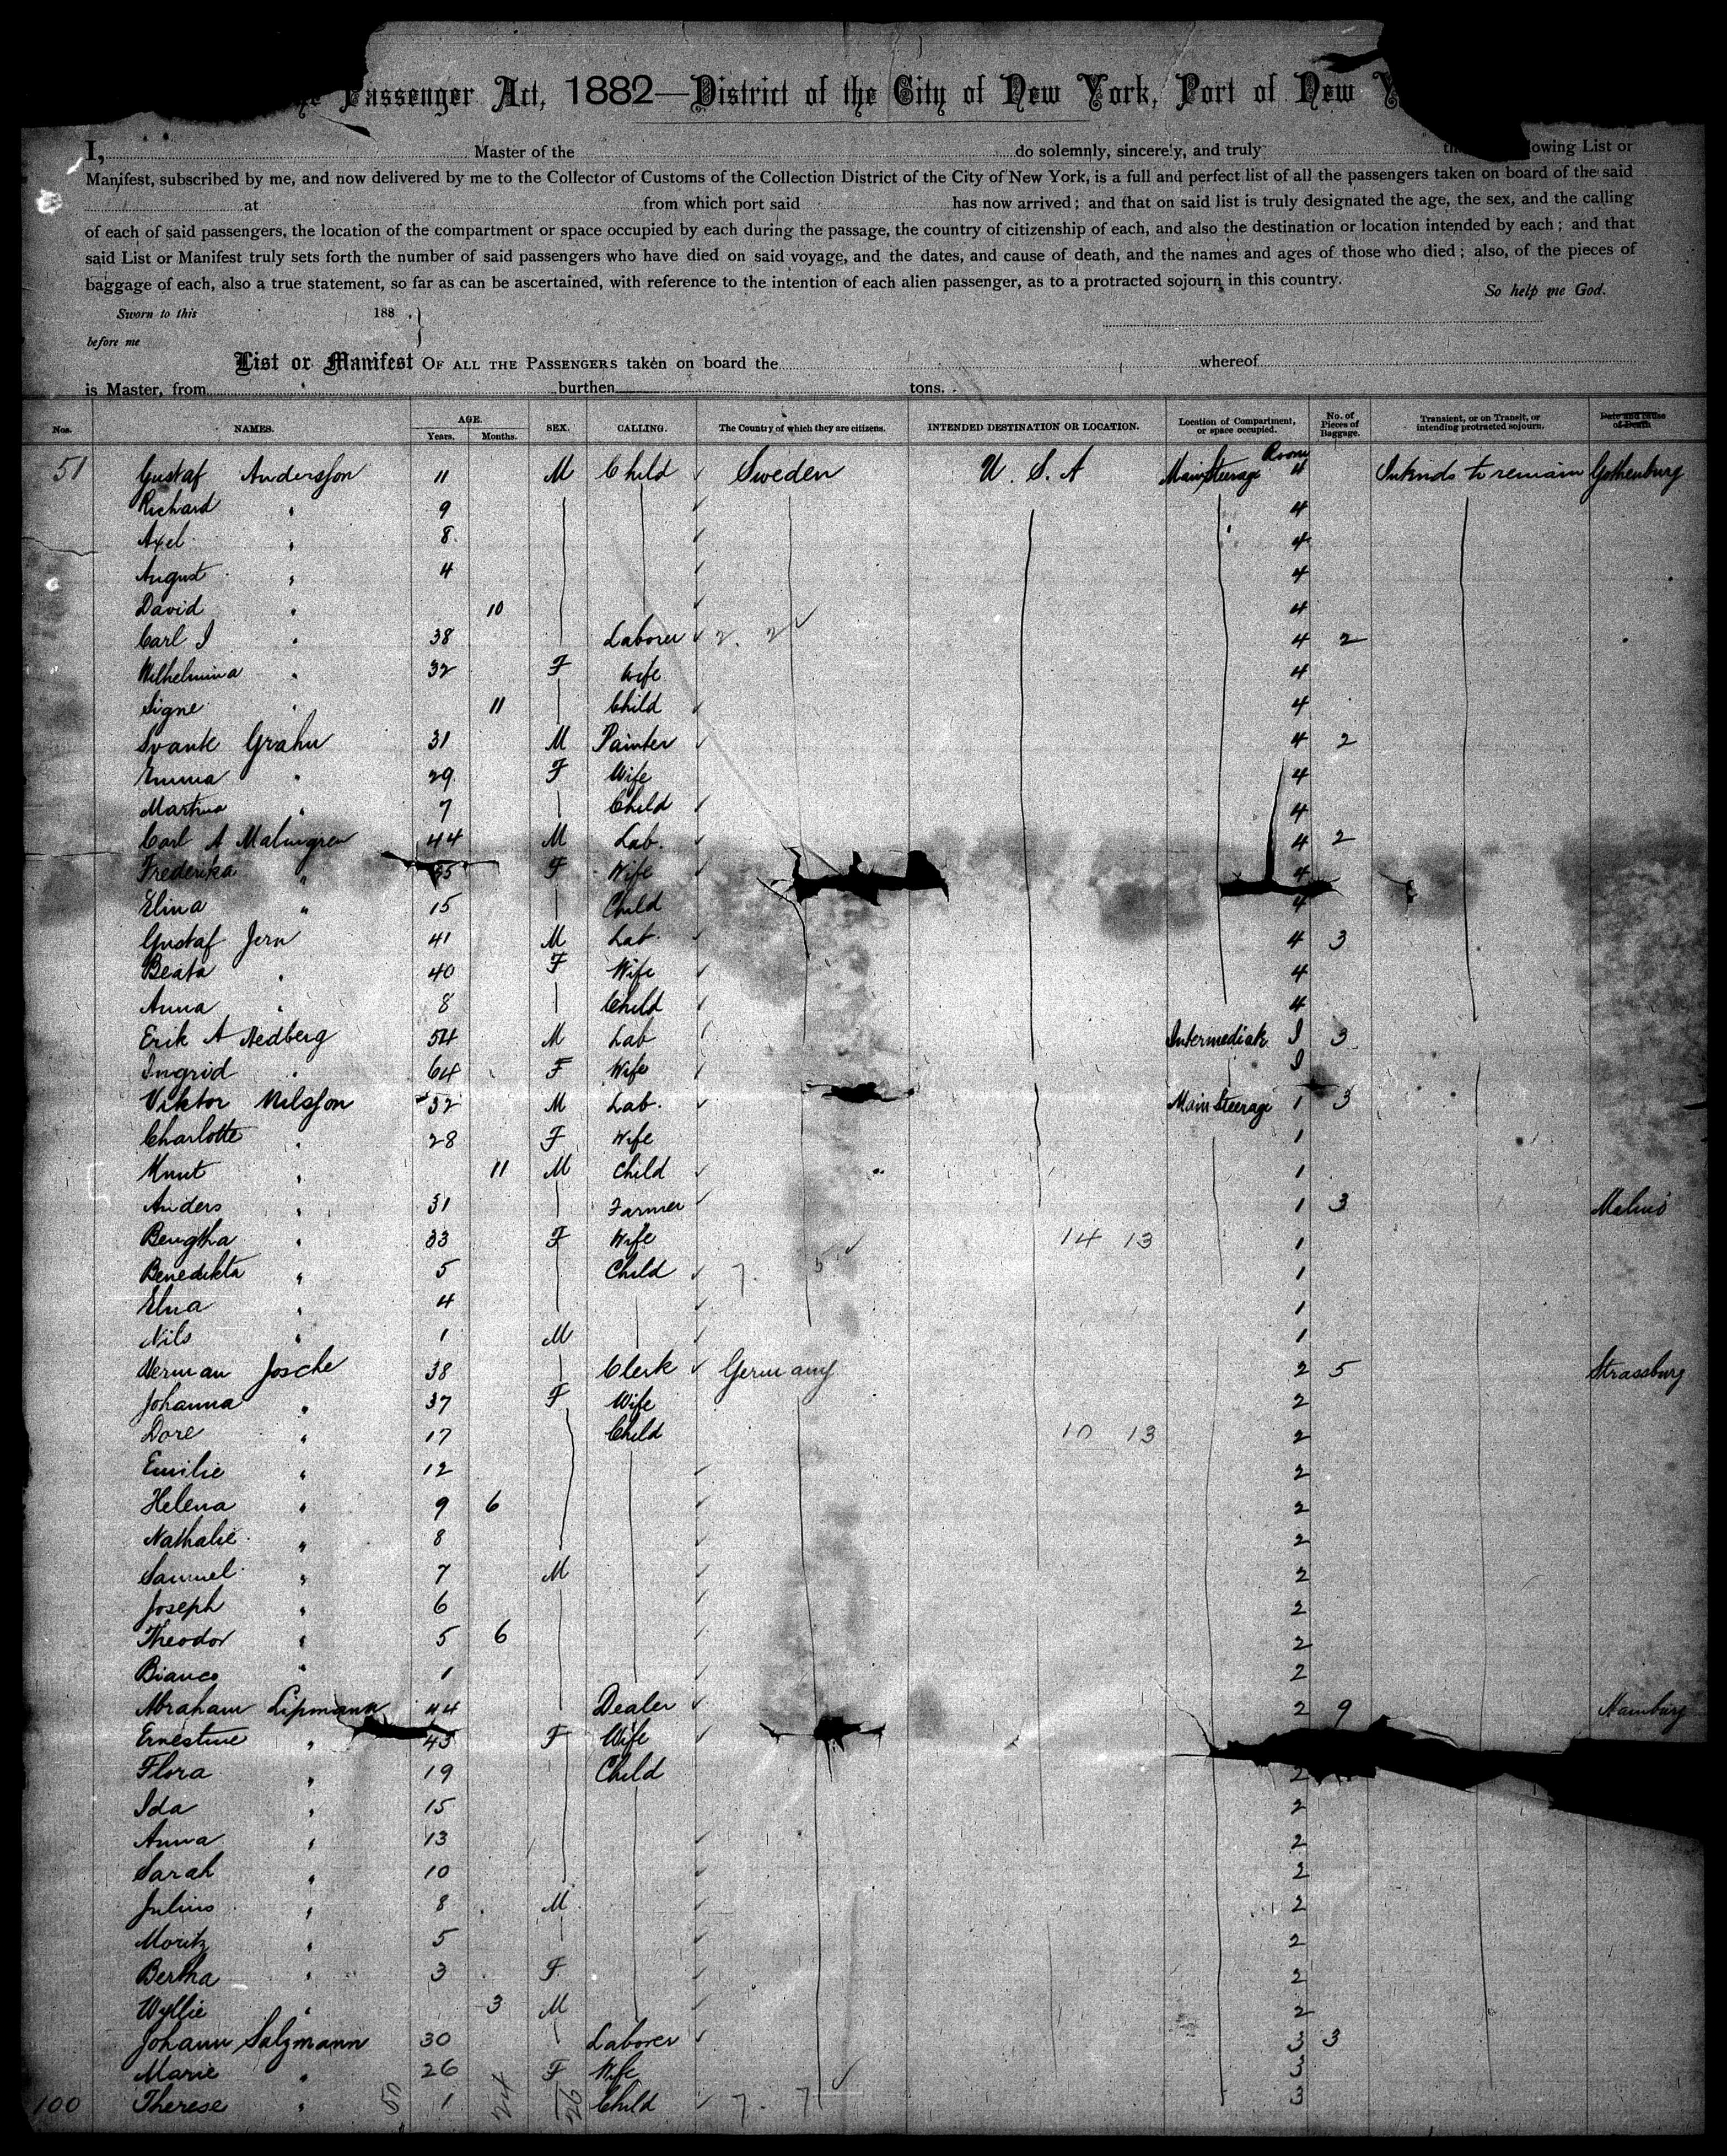 Passenger Act, 1882—District of the City of New York, Port of New
I, Master of the do solemnly, sincerely, and truly lowing List or
Manifest, subscribed by me, and now delivered by me to the Collector of Customs of the Collection District of the City of New York, is a full and perfect list of all the passengers taken on board of the said
at from which port said has now arrived; and that on said list is truly designated the age, the sex, and the calling
of each of said passengers, the location of the compartment or space occupied by each during the passage, the country of citizenship of each, and also the destination or location intended by each; and that
said List or Manifest truly sets forth the number of said passengers who have died on said voyage, and the dates, and cause of death, and the names and ages of those who died; also, of the pieces of
baggage of each, also a true statement, so far as can be ascertained, with reference to the intention of each alien passenger, as to a protracted sojourn in this country. So help me God.
Sworn to this 188
before me
List or Manifest OF ALL THE PASSENGERS taken on board the whereof
is Master, from burthen tons.
Nos. NAMES. AGE. Years. Months. SEX. CALLING. The Country of which they are citizens. INTENDED DESTINATION OR LOCATION. Location of Compartment, or space occupied. No. of Pieces of Baggage. Transient, or on Transit, or intending protracted sojourn. Date and cause of Death
51 Gustaf Andersson 11 M Child Sweden U. S. A Main Steerage Room 4 Intends to remain Gothenburg
Richard " 9 4
Axel " 8 4
August " 4 4
David " 10 4
Carl J " 38 Laborer 2. 2 4 2
Wilhelmina " 32 F Wife 4
Signe " 11 Child 4
Svante Grahn 31 M Painter 4 2
Emma " 29 F Wife 4
Martina " 7 Child 4
Carl A Malmgren 44 M Lab. 4 2
Frederika " F Wife 4
Elina " 15 Child 4
Gustaf Jern 41 M Lab. 4 3
Beata " 40 F Wife 4
Anna " 8 Child 4
Erik A Hedberg 54 M Lab Intermediate I 3
Ingrid " 64 F Wife I
Viktor Nilsson 32 M Lab. Main Steerage 1 3
Charlotte " 28 F Wife 1
Knut " 11 M Child 1
Anders " 31 Farmer 1 3 Malmö
Bengtha " 33 F Wife 14 13 1
Benedikta " 5 Child 7. 5 1
Elna " 4 1
Nils " 1 M 1
Herman Josche 38 Clerk Germany 2 5 Strassburg
Johanna " 37 F Wife 2
Dore " 17 Child 10 13 2
Emilie " 12 2
Helena " 9 6 2
Nathalie " 8 2
Samuel " 7 M 2
Joseph " 6 2
Theodor " 5 6 2
Bianco " 1 2
Abraham Lipmann 44 Dealer 2 9 Hamburg
Ernestine " 45 F Wife
Flora " 19 Child 2
Ida " 15 2
Anna " 13 2
Sarah " 10 2
Julius " 8 M 2
Moritz " 5 2
Bertha " 3 F 2
Wyllie " 3 M 2
Johann Salzmann 30 Laborer 3 3
Marie " 26 F Wife 3
100 Therese " 50 1 24 26 Child 7. 7 3